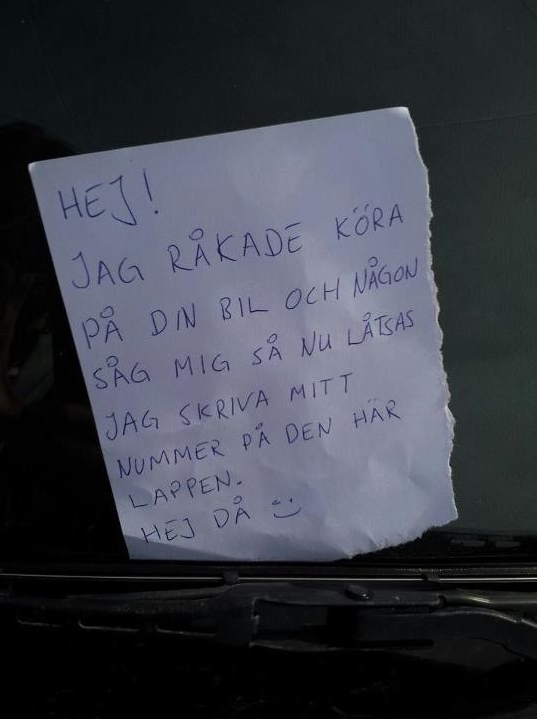 HEJ!
JAG RÅKADE KÖRA
PÅ DIN BIL OCH NÅGON
SÅG MIG SÅ NU LÅTSAS
JAG SKRIVA MITT
NUMMER PÅ DEN HÄR
LAPPEN.
HEJ DÅ :)